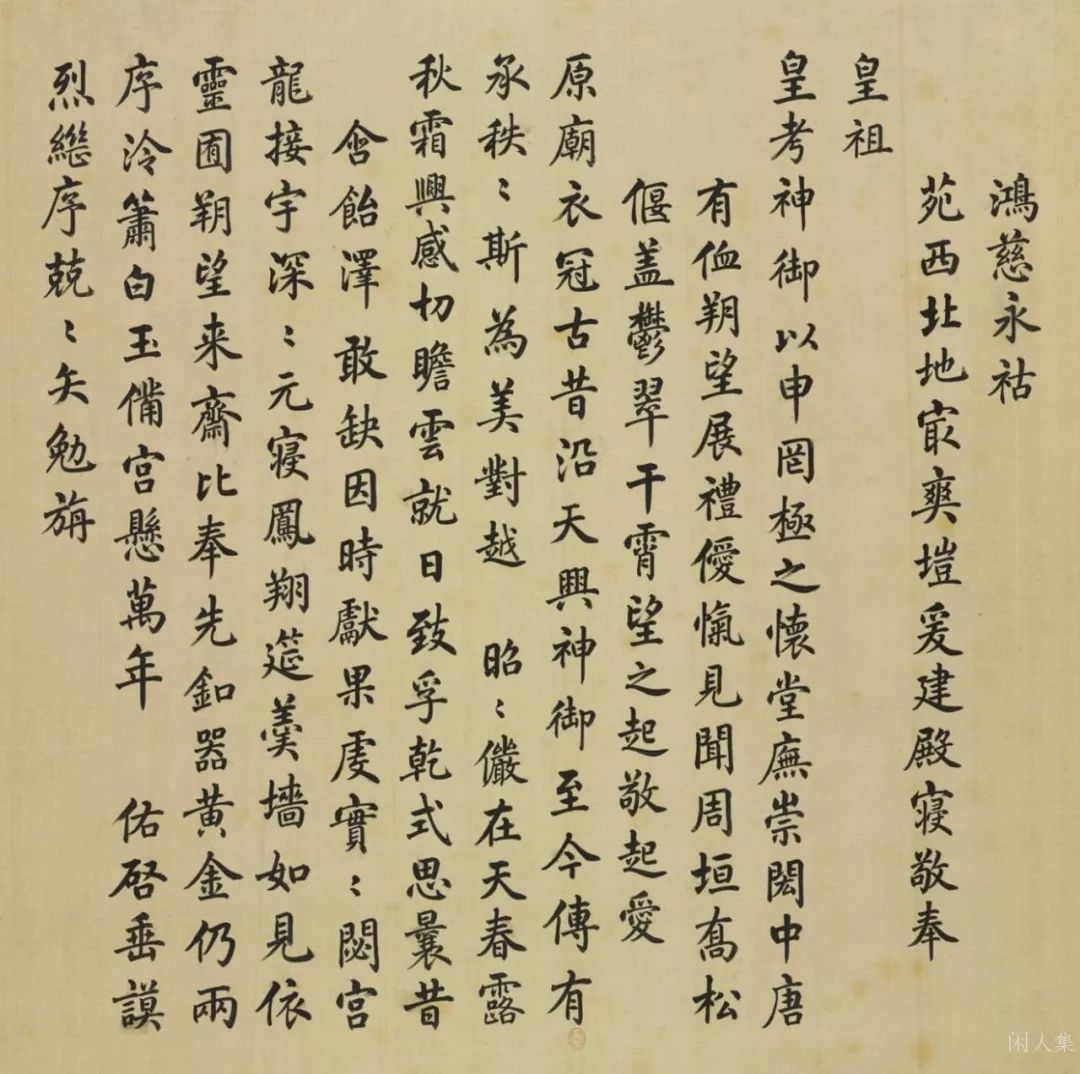 鴻慈永祜
苑西北地㝡爽塏爰建殿寢敬奉
皇祖
皇考神御以申罔極之懷堂廡崇閎中唐
有侐朔望展禮優愾見聞周垣喬松
偃盖鬱翠干霄望之起敬起愛
原廟衣冠古昔沿天興神御至今傳有
承秩〻斯為美對越 昭〻儼在天春露
秋霜興感切瞻雲就日致孚乾式思曩昔
含飴澤敢缺因時獻果虔實〻閟宫
龍接宇深〻元寢鳳翔筵羹墻如見依
靈囿朔望来齋比奉先釦器黄金仍兩
序泠簫白玉備宫懸萬年 佑啓垂謨
烈繼序兢〻矢勉旃
闲人集